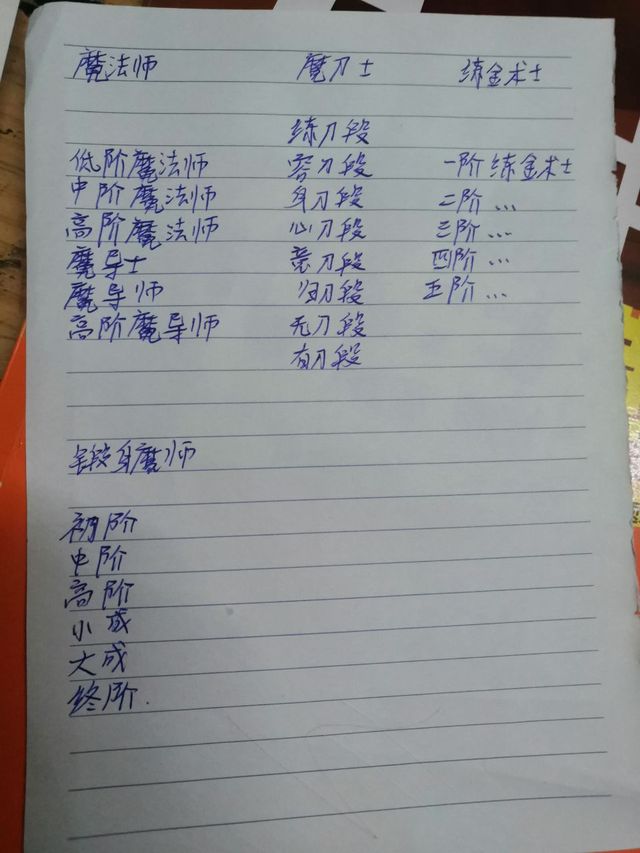 魔法师 魔刀士 练金术士
练刀段
低阶魔法师 容刀段 一阶练金术士
中阶魔法师 身刀段 二阶...
高阶魔法师 心刀段 三阶...
魔导士 意刀段 四阶...
魔导师 归刀段 五阶...
高阶魔导师 无刀段
有刀段
锻身魔师
初阶
中阶
高阶
小成
大成
终阶.